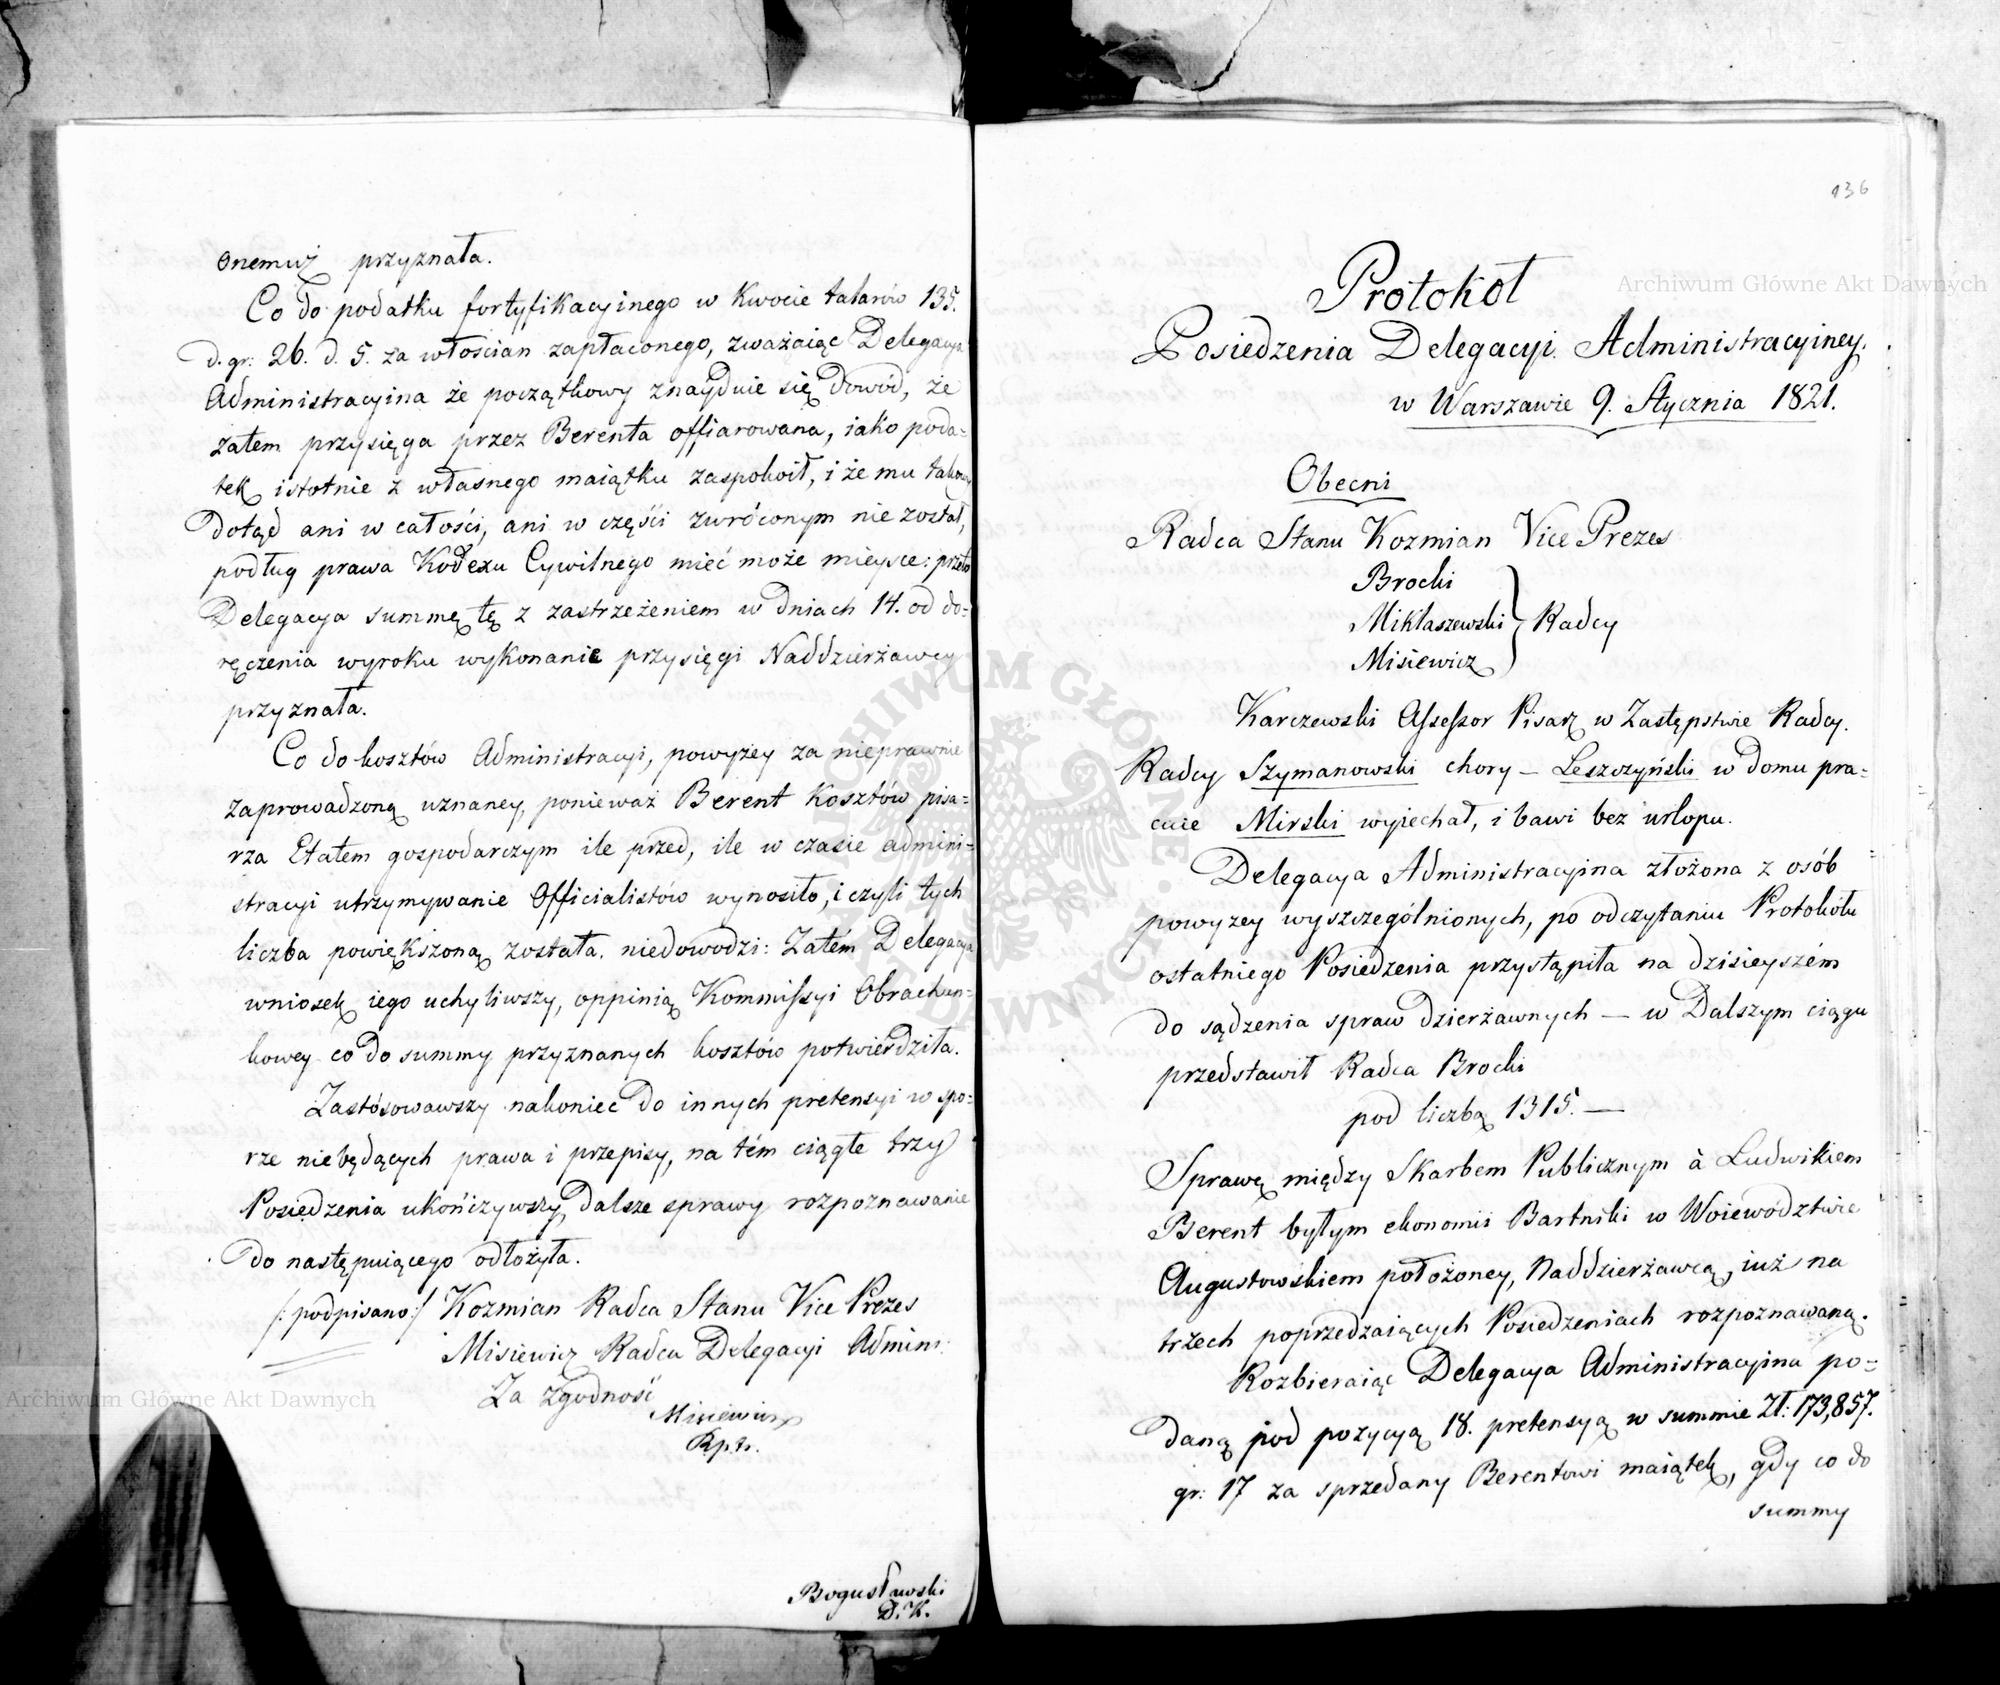 onemuż przyznała.
Co do podatku fortyfikacyinego w kwocie talarów 135.
d.gr: 26. d. 5. za włościan zapłaconego, zważaiąc Delegacya
Administracyina że początkowy znayduie się dowód, że
zatem przysięga przez Berenta offiarowana, iako poda=
tek istotnie z własnego maiątku zaspokoił, i że mu takowy
dotąd ani w całości, ani w części zwróconym nie został,
podług prawa Kodexu Cywilnego mieć może mieysce: przeto
Delegacya summę tę z zastrzeżeniem w dniach 14. od do=
ręczenia wyroku wykonanie przysięgi Naddzierżawcy
przyznała.
Co do kosztów Administracyi, powyżey za nieprawnie
zaprowadzoną uznaney, ponieważ Berent kosztów pisa=
rza Etatem gospodarczym ile przed, ile w czasie admini=
stracyi utrzymywanie Officialistów wynosiło, i czyli tych
liczba powiększoną została, niedowodzi: Zatém Delegacya
wniosek iego uchyliwszy, oppinią Kommissyi Obrachun=
kowey co do summy przyznanych kosztów potwierdziła.
Zastósowawszy nakoniec do innych pretensyi w spo=
rze niebędących prawa i przepisy, na tém ciągłe trzy
Posiedzenia ukończywszy, dalsze sprawy rozpoznawanie
do następuiącego odłożyła.
/:podpisano:/ Kozmian Radca Stanu Vice Prezes
Misiewicz Radca Delegacyi Admini:
Za zgodność
Misiewicz
Rptr.
Bogusławski
D.K.
136
Protokoł
Posiedzenia Delegacyi Administracyiney.
w Warszawie 9. Stycznia 1821.
Obecni
Radca Stanu Kozmian Vice Prezes
Brocki
Miklaszewski } Radcy
Misiewicz
Karczewski Assessor Pisarz w Zastępstwie Radcy.
Radcy Szymanowski chory – Leszczyński w domu pra=
cuie Mirski wyiechał, i bawi bez urlopu.
Delegacya Administracyina złożona z osób
powyżey wyszczególnionych, po odczytaniu Protokołu
ostatniego Posiedzenia przystąpiła na dzisieyszém
do sądzenia spraw dzierżawnych — w dalszym ciągu
przedstawił Radca Brocki
pod liczbą 1315. —
Sprawę między Skarbem Publicznym à Ludwikiem
Berent byłym ekonomii Bartniki w Woiewództwie
Augustowskiem położoney, Naddzierżawcą, iuż na
trzech poprzedzaiących Posiedzeniach rozpoznawaną.
Rozbieraiąc Delegacya Administracyina po=
daną pod pozycyą 18. pretensyą w summie Zł: 173,857.
gr: 17 za sprzedany Berentowi maiątek, gdy co do
summy
Archiwum Główne Akt Dawnych
Archiwum Główne Akt Dawnych
ARCHIWUM GŁÓWNE AKT DAWNYCH